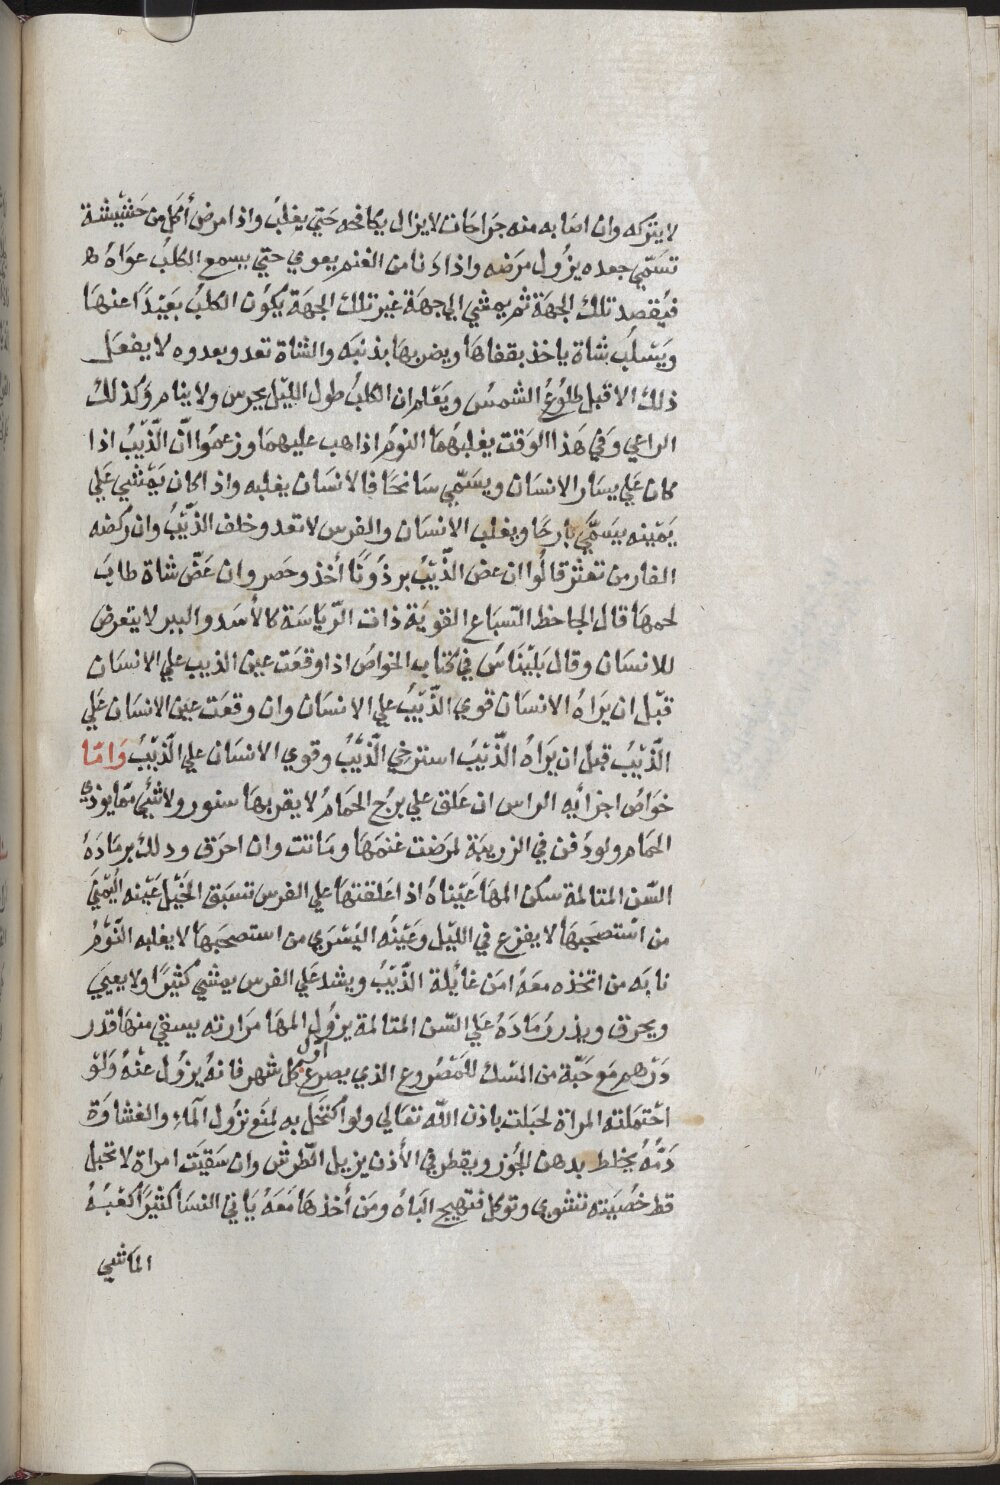 لا يتركه وان اصابه منه جراحات لا يزال يكافحه حتي يغلب واذا مرض أكل من حشيشة
تسمّي جعده يزول مرضه واذا دنا من الغنم يعوي حتي يسمع الكلب عواه
فيقصد تلك الجهة ثم يمشي الي جهة غير تلك الجهة يكون الكلب بعيدًا عنها
ويسلب شاة ياخذ بقفاها ويضربها بذنبه والشاة تعدو بعدوه لا يفعل
ذلك الا قبل طلوع الشمس ويعلم ان الكلب طول الليل يحرس ولا ينام وكذلك
الراعي وفي هذا الوقت يغلبهما النوم اذا هب عليهما وزعموا انّ الذّيب اذا
كان علي يسار الانسان ويسمّي سانحًا فالانسان يغلبه واذا كان يمشي علي
يمينه يسمّي بارحًا ويغلب الانسان والفرس لا تعدو خلف الذيب وان ركضه
الفارس تعثر قالوا ان عض الذّيب برذونًا أخذ وحصر وان عضّ شاة طاب
لحمها قال الجاحظ السّباع القوية ذات الرّياسة كالأسد والببر لا يتعرض
للانسان وقال بليناس في كتاب الخواص اذا وقعت عين الذيب علي الانسان
قبل ان يراه الانسان قوي الذّيب علي الانسان وان وقعت عين الانسان علي
الذّيب قبل ان يراه الذّيب استرخي الذّيب وقوي الانسان علي الذّيب وامّا
خواص اجزائه الراس ان علق علي برج الحمام لا يقربها سنور ولا شئي ممّا يوذي
الحمام ولو دفن في الزريبة لمرضت غنمها وماتت وان احرق ودلك برماده
السّن المتالمة سكن المها عيناه اذا علقتها علي الفرس تسبق الخيل عينه اليمني
من استصحبها لا يفزع في الليل وعينه اليسري من استصحبها لا يغلبه النّوم
نابه من اتخذه معه امن غائلة الذّيب ويشد علي الفرس يمشي كثيرًا ولا يعيي
ويحرق ويذر رماده علي السّن المتالمة يزول المها مرارته يسقي منها قدر
درهم مع حبّة من المسك للمصروع الذي يصرع اول كل شهر فانه يزول عنه ولو
احتملته المراة لحبلت باذن الله تعالي ولو اكتحل به لمنع نزول الماء والغشاوة
دمه يخلط بدهن الجوز ويقطر في الأذن يزيل الطّرش وان سقيت امراة لا تحبل
قط خصيته تشوي وتوكل فتهيج الباه ومن أخذها معه ياتي النسا كثيرًا كعبه
الماشي